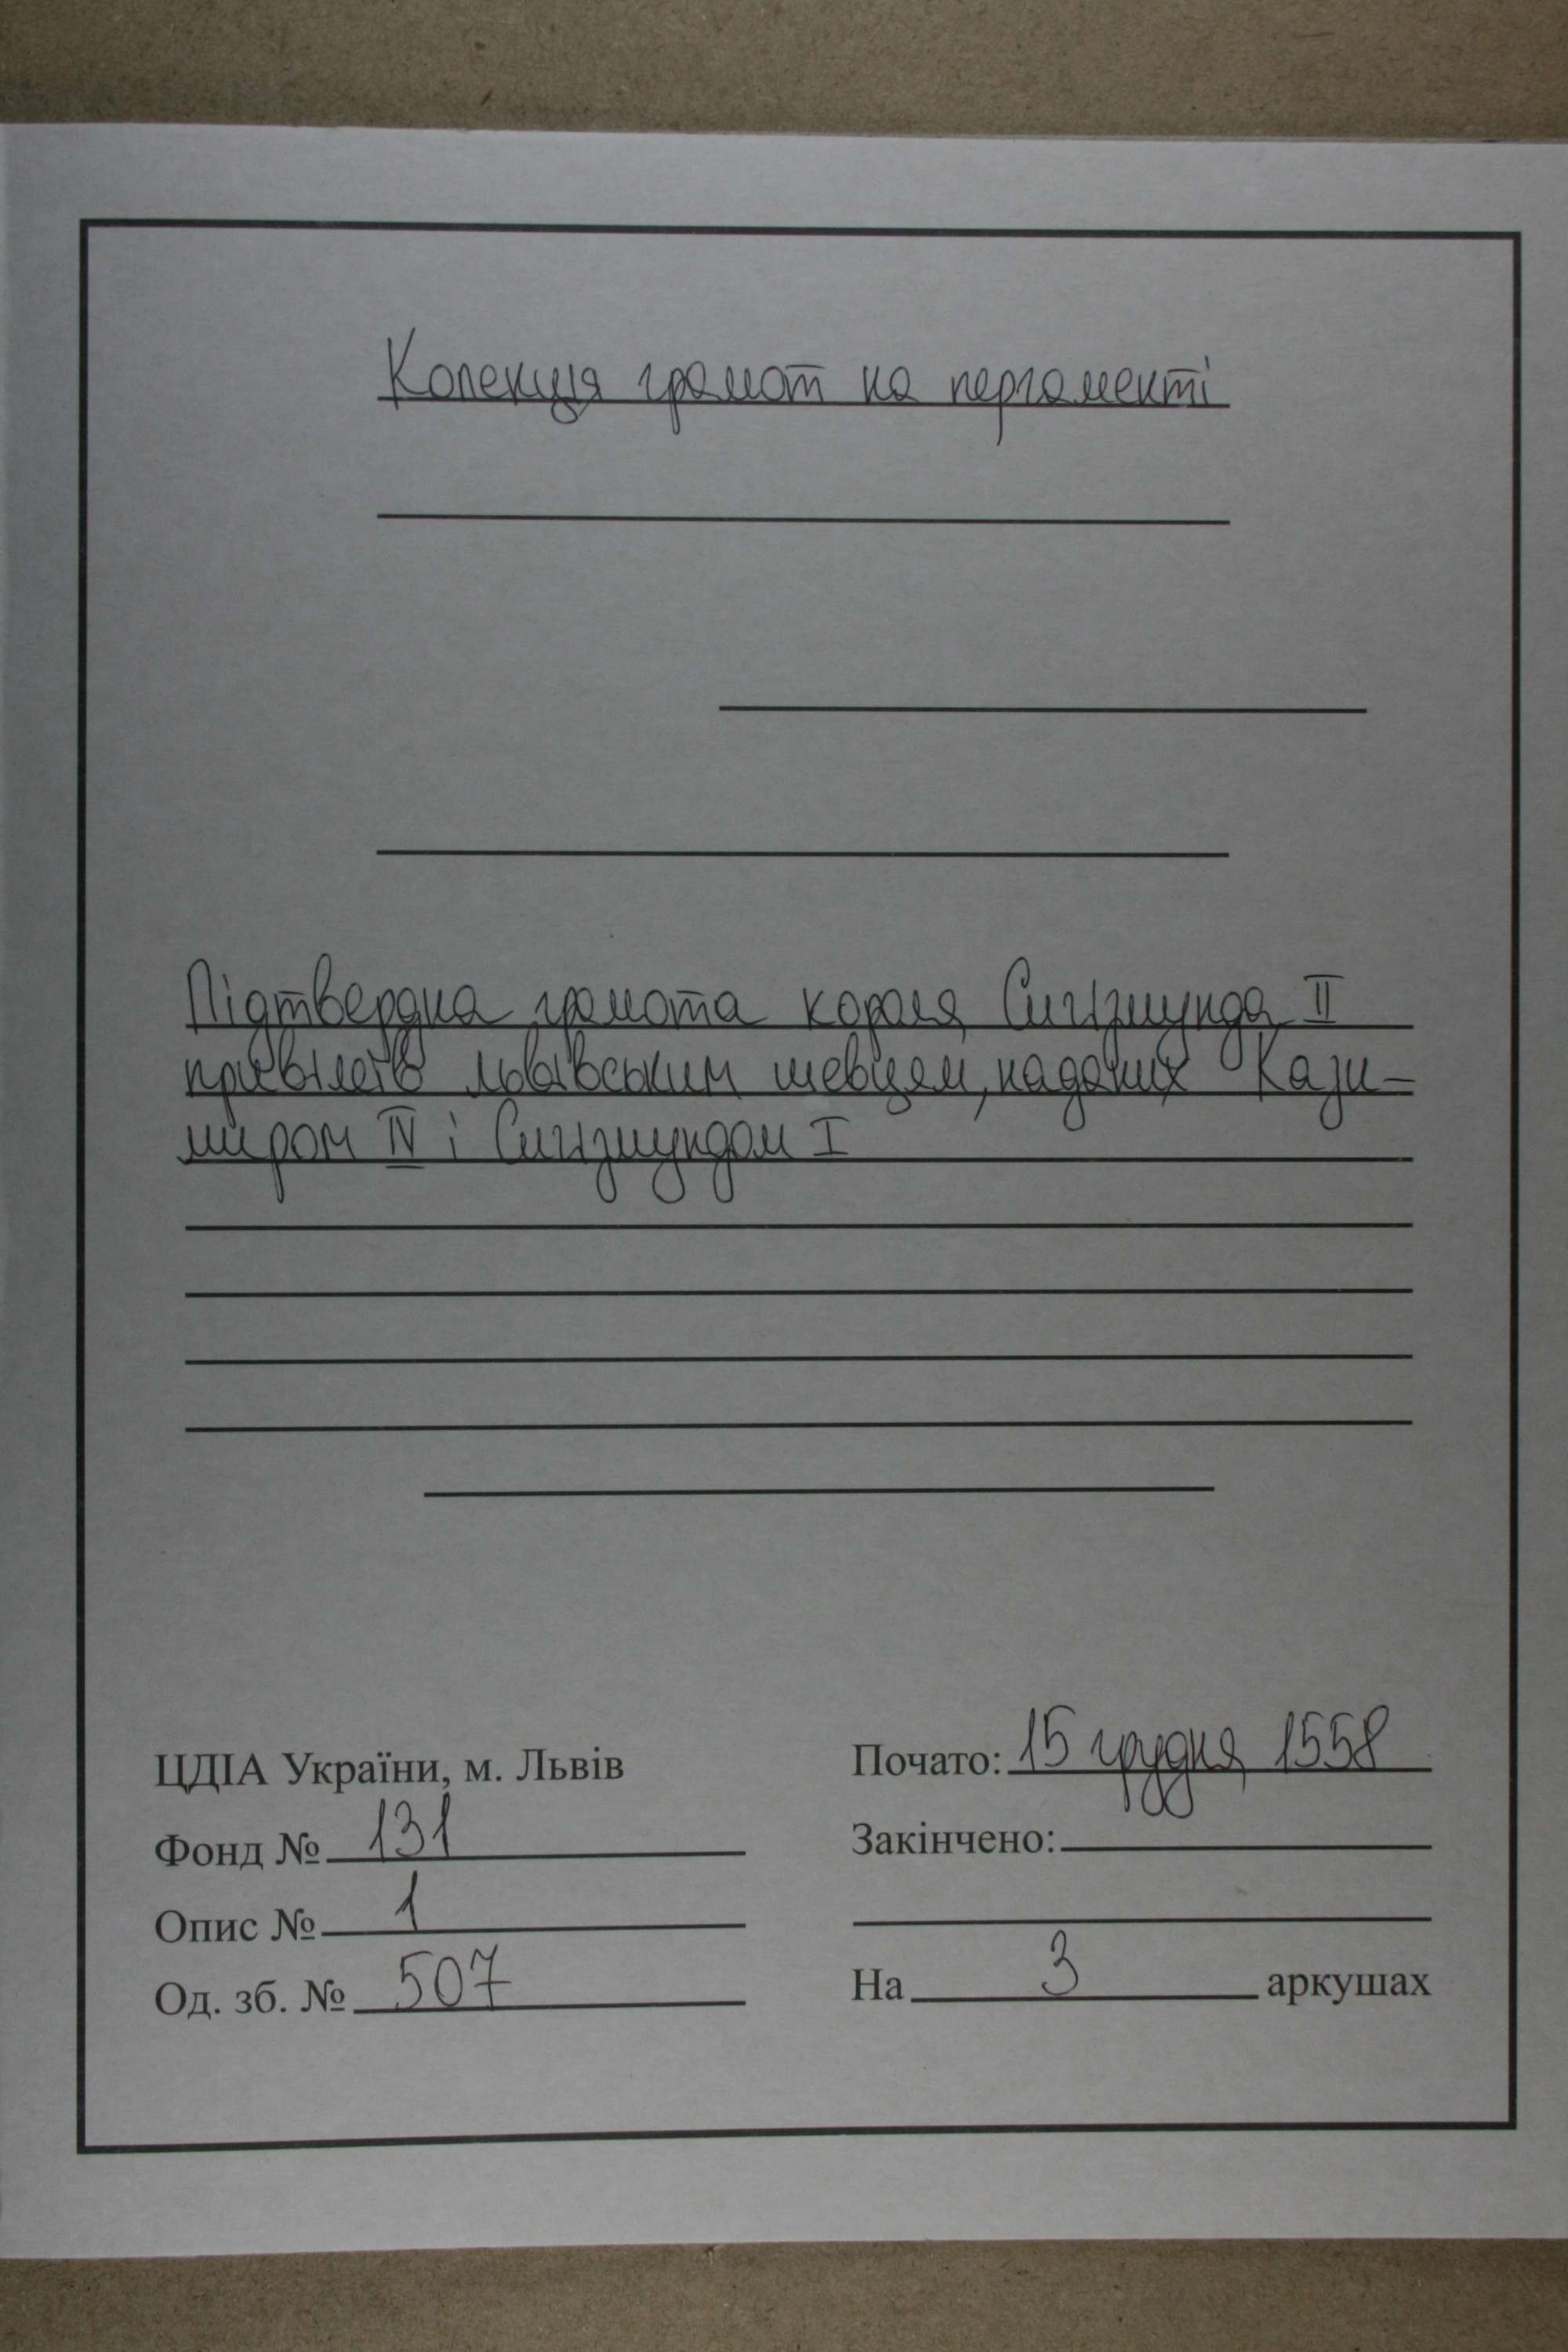 Колекція грамот на пергаменті
Підтвердна грамота короля Сигізмунда II
привілеїв львівським шевцям, наданих Кази-
миром IV і Сигізмундом I
ЦДІА України, м. Львів
Фонд № 131
Опис № 1
Од. зб. № 507
Почато: 15 грудня 1558
Закінчено:
На 3 аркушах